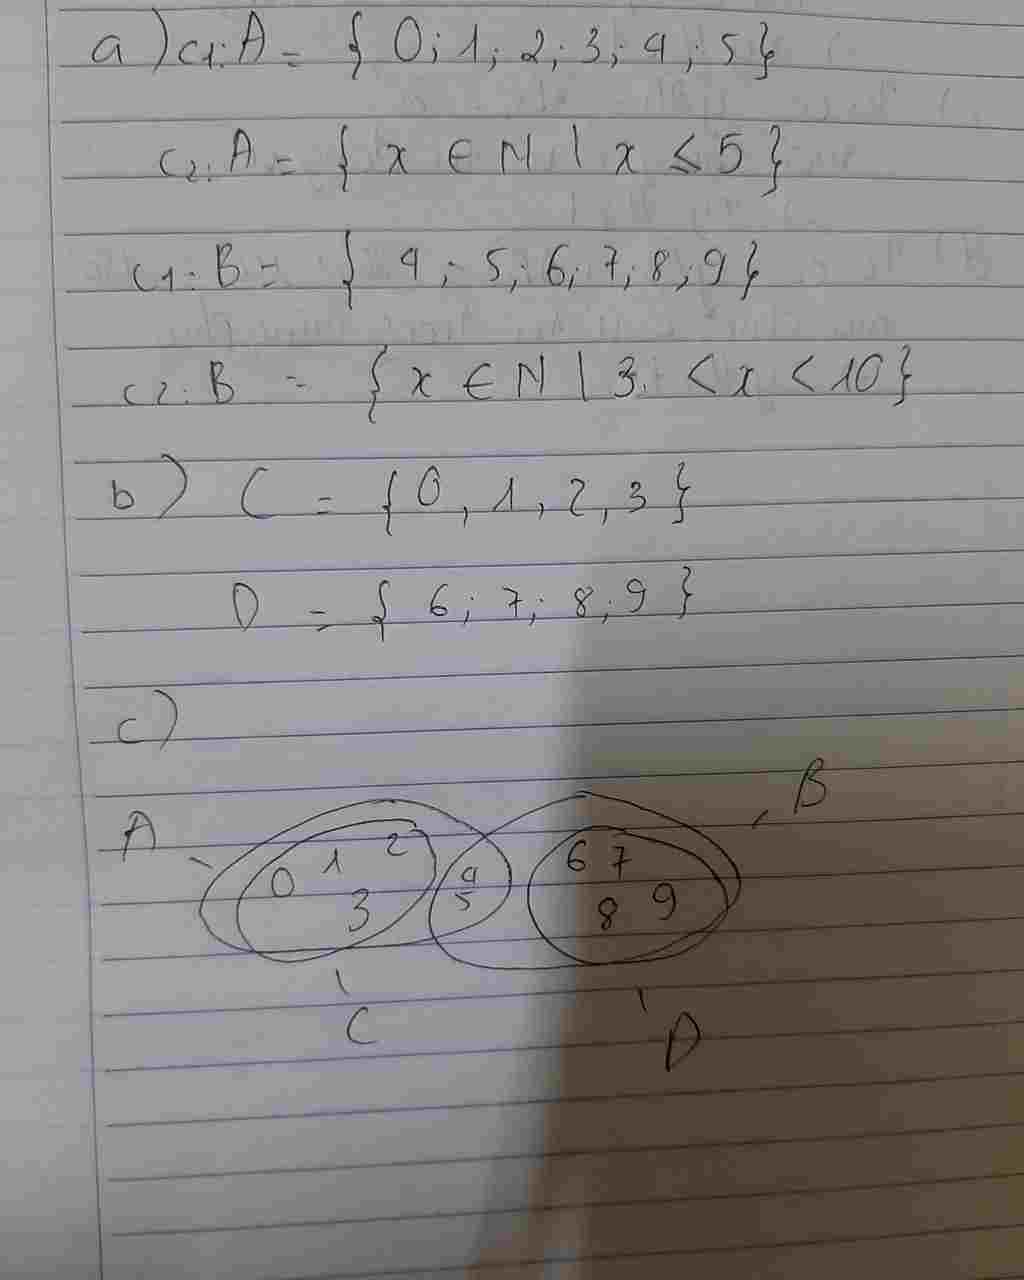 a) C1: A = { 0; 1; 2; 3; 4; 5}
C2: A = { x ∈ N | x ≤ 5 }
C1: B = { 4; 5; 6; 7; 8; 9}
C2: B = { x ∈ N | 3 < x < 10 }
b) C = { 0, 1, 2, 3 }
D = { 6; 7; 8; 9 }
c)
B
A
0 1 2 4 6 7
3 5 8 9
C
D